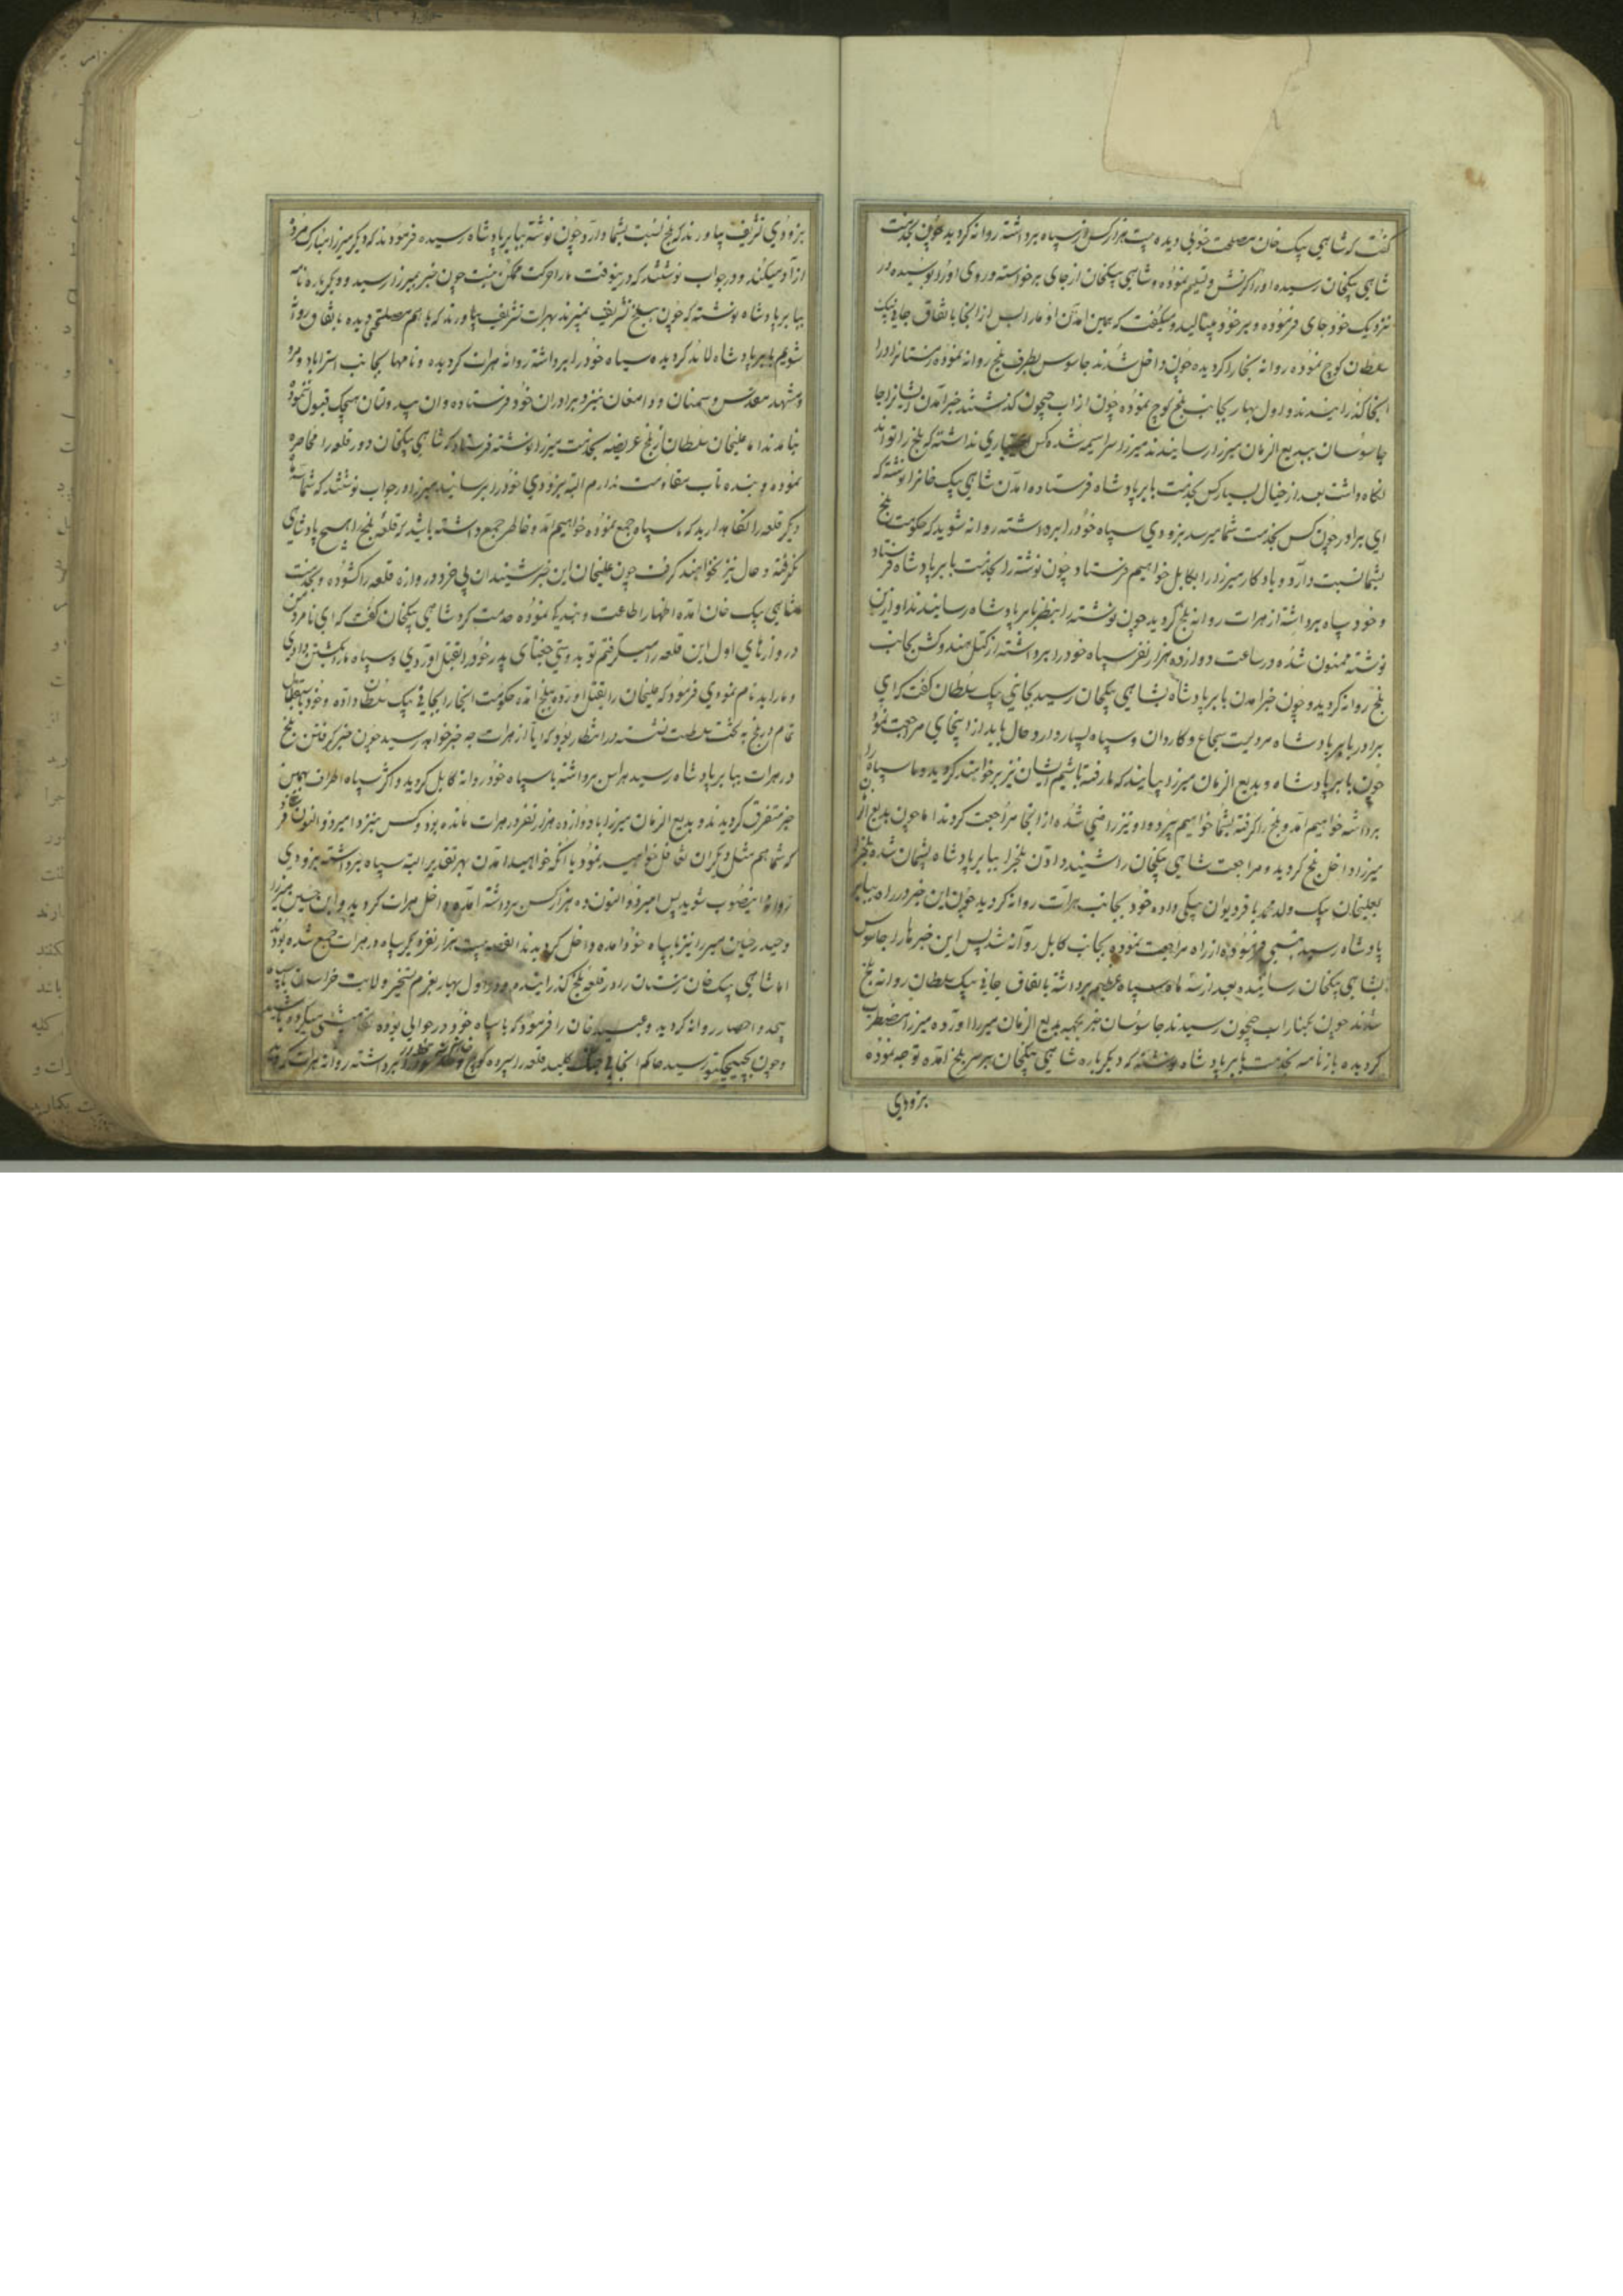 گفت که شاهی بیک خان مصلحت خوبی دیده بیست هزار کس از سپاه برداشته روانه گردید چون بخدمت
شاهی بیکخان رسیده او را کرنش و تسلیم نموده و شاهی بیکخان از جای برخواسته و روی او را بوسیده در
نزدیک خود جای فرموده و بر خود میبالید و میگفت که همین آمدن او ما را بس از آنجا باتفاق جانی بیک
سلطان کوچ نموده روانه بخارا گردیده چون داخل شدند جاسوس بطرف بلخ روانه نموده زمستان را در
انجا گذرانیدند و اول بهار بجانب بلخ کوچ نموده چون از آب جیحون گذشتند خبر آمدن ایشانرا جا
جاسوسان ببدیع الزمان میرزا رسانیدند میرزا سراسیمه شده کس اعتباری نداشته که بلخ را تواند
نگاه داشت بعد از خیال بسیار کس بخدمت بابر پادشاه فرستاده آمدن شاهی بیک خانرا نوشته که
ای برادر چون کس بخدمت شما میرسد بزودی سپاه خود را برداشته روانه شوید که حکومت بلخ
بشما نسبت دارد و یادکار میرزا را بکابل خواهیم فرستاد چون نوشته را بخدمت بابر پادشاه فرستاد
و خود سپاه برداشته از هرات روانه بلخ گردید چون نوشته را بنظر بابر پادشاه رسانیدند او از این
نوشته ممنون شده در ساعت دوازده هزار نفر سپاه خود را برداشته از کتل هندوکش بجانب
بلخ روانه گردید و چون خبر آمدن بابر پادشاه بشاهی بیکخان رسید بجانی بیک سلطان گفت که ای
برادر بابر پادشاه مردیست شجاع و کاردان و سپاه بسیار دارد حال باید از اینجای مراجعت نمود
چون بابر پادشاه و بدیع الزمان میرزا بیایند که ما رفته باشیم ایشان نیز برخواهند گردید و ما سپاه را
برداشته خواهیم آمد و بلخ را گرفته بشما خواهیم سپرد او نیز راضی شده از آنجا مراجعت کردند اما چون بدیع الزمان
میرزا داخل بلخ گردید و مراجعت شاهی بیکخان را شنید دادن بلخ را ببابر پادشاه پشیمان شده بلخ را
بعلیخان بیک ولد محمد باقر دیوان بیکی داده خود بجانب هرات روانه گردید چون این خبر در راه ببابر
پادشاه رسید فرموده از راه مراجعت نموده بجانب کابل روانه شد پس این خبر ها را جاسوس
بشاهی بیکخان رسانیده بعد از سه ماه سپاه عظیم برداشته باتفاق جانی بیک سلطان روانه بلخ
شدند چون بکنار اب جیحون رسیدند جاسوسان خبر بجهه بدیع الزمان میرزا آورده میرزا مضطرب
گردیده باز نامه بخدمت بابر پادشاه نوشته که دیگر باره شاهی بیکخان بر سر بلخ آمده توجه نموده
بزودی
بزودی تشریف بیاورند که بلخ نسبت بشما دارد چون نوشته ببابر پادشاه رسیده فرمودند که دیگر میرزا مبارک مرد
ازاد میکند و در جواب نوشتند که درینوقت ما را حرکت ممکن نیست چون خبر بمیرزا رسید و دیگر باره نامه
ببابر پادشاه نوشته که چون ببلخ تشریف نمیبرند بهرات تشریف بیاورند که با هم مصلحتی دیده باتفاق روانه
شویم بابر پادشاه لابد گردیده سپاه خود را برداشته روانه هرات گردیده و نامها بجانب استراباد و مرو
و مشهد مقدس و سمنان و دامغان بنزد برادران خود فرستاده و ان بیدولتان هیچیک قبول ننموده
نیامدند اما علیخان سلطان از بلخ عریضه بخدمت میرزا نوشته فرستاد که شاهی بیکخان دور قلعه را محاصره
نموده و بنده تاب مقاومت ندارم البته بزودی خود را برسانید میرزا در جواب نوشتند که شما
دیگر قلعه را نگاهدارید که ما سپاه جمع نموده خواهیم آمد و خاطر جمع داشته باشید که قلعه بلخ را هیچ پادشاهی
نگرفته و حال نیز نخواهند گرفت چون علیخان این خبر شنید ان بی خرد دروازه قلعه را گشوده و بخدمت
شاهی بیک خان آمده اظهار اطاعت و بندگی نموده خدمت کرد شاهی بیکخان گفت که ای نامرد من
در روزهای اول این قلعه را میگرفتم تو بدوستی جغتای پدر خود را بقتل آوردی و سپاه ما را بکشتن دادی
و ما را بدنام نمودی فرمود که علیخان را بقتل آورده ببلخ آمده حکومت انجا را بجانی بیک سلطان داده و خود باستقلال
تمام در بلخ به تخت سلطنت نشسته در انتظار بود که ایا از هرات چه خبر خواهد رسید چون خبر گرفتن بلخ
در هرات ببابر پادشاه رسید هراس برداشته با سپاه خود روانه کابل گردید و اکثر سپاه اطراف بهمین
خبر متفرق گردیدند و بدیع الزمان میرزا با دوازده هزار نفر در هرات مانده بود و کس بنزد امیر ذوالنون
که شما هم مثل دیگران تغافل خواهید نمود یا انکه خواهید آمدن بهر تقدیر البته سپاه برداشته بزودی
روانه اینصوب شوید پس امیر ذوالنون ده هزار کس برداشته آمده داخل هرات گردید و ابن حسین میرزا
و حیدر حسین میرزا نیز با سپاه خود آمده داخل گردیدند القصه بیست هزار نفر دیگر سپاه در هرات جمع شده بودند
اما شاهی بیک خان زمستان را در قلعه بلخ گذرانیده و در اول بهار بعزم تسخیر ولایت خراسان با سپاه
بیحد و احصا روانه گردید و عبید خان را فرمود که با سپاه خود در حوالی بوده
و چون بچیچکتو رسید حاکم انجا کلید قلعه را سپرده کوچ برداشته روانه هرات گردید